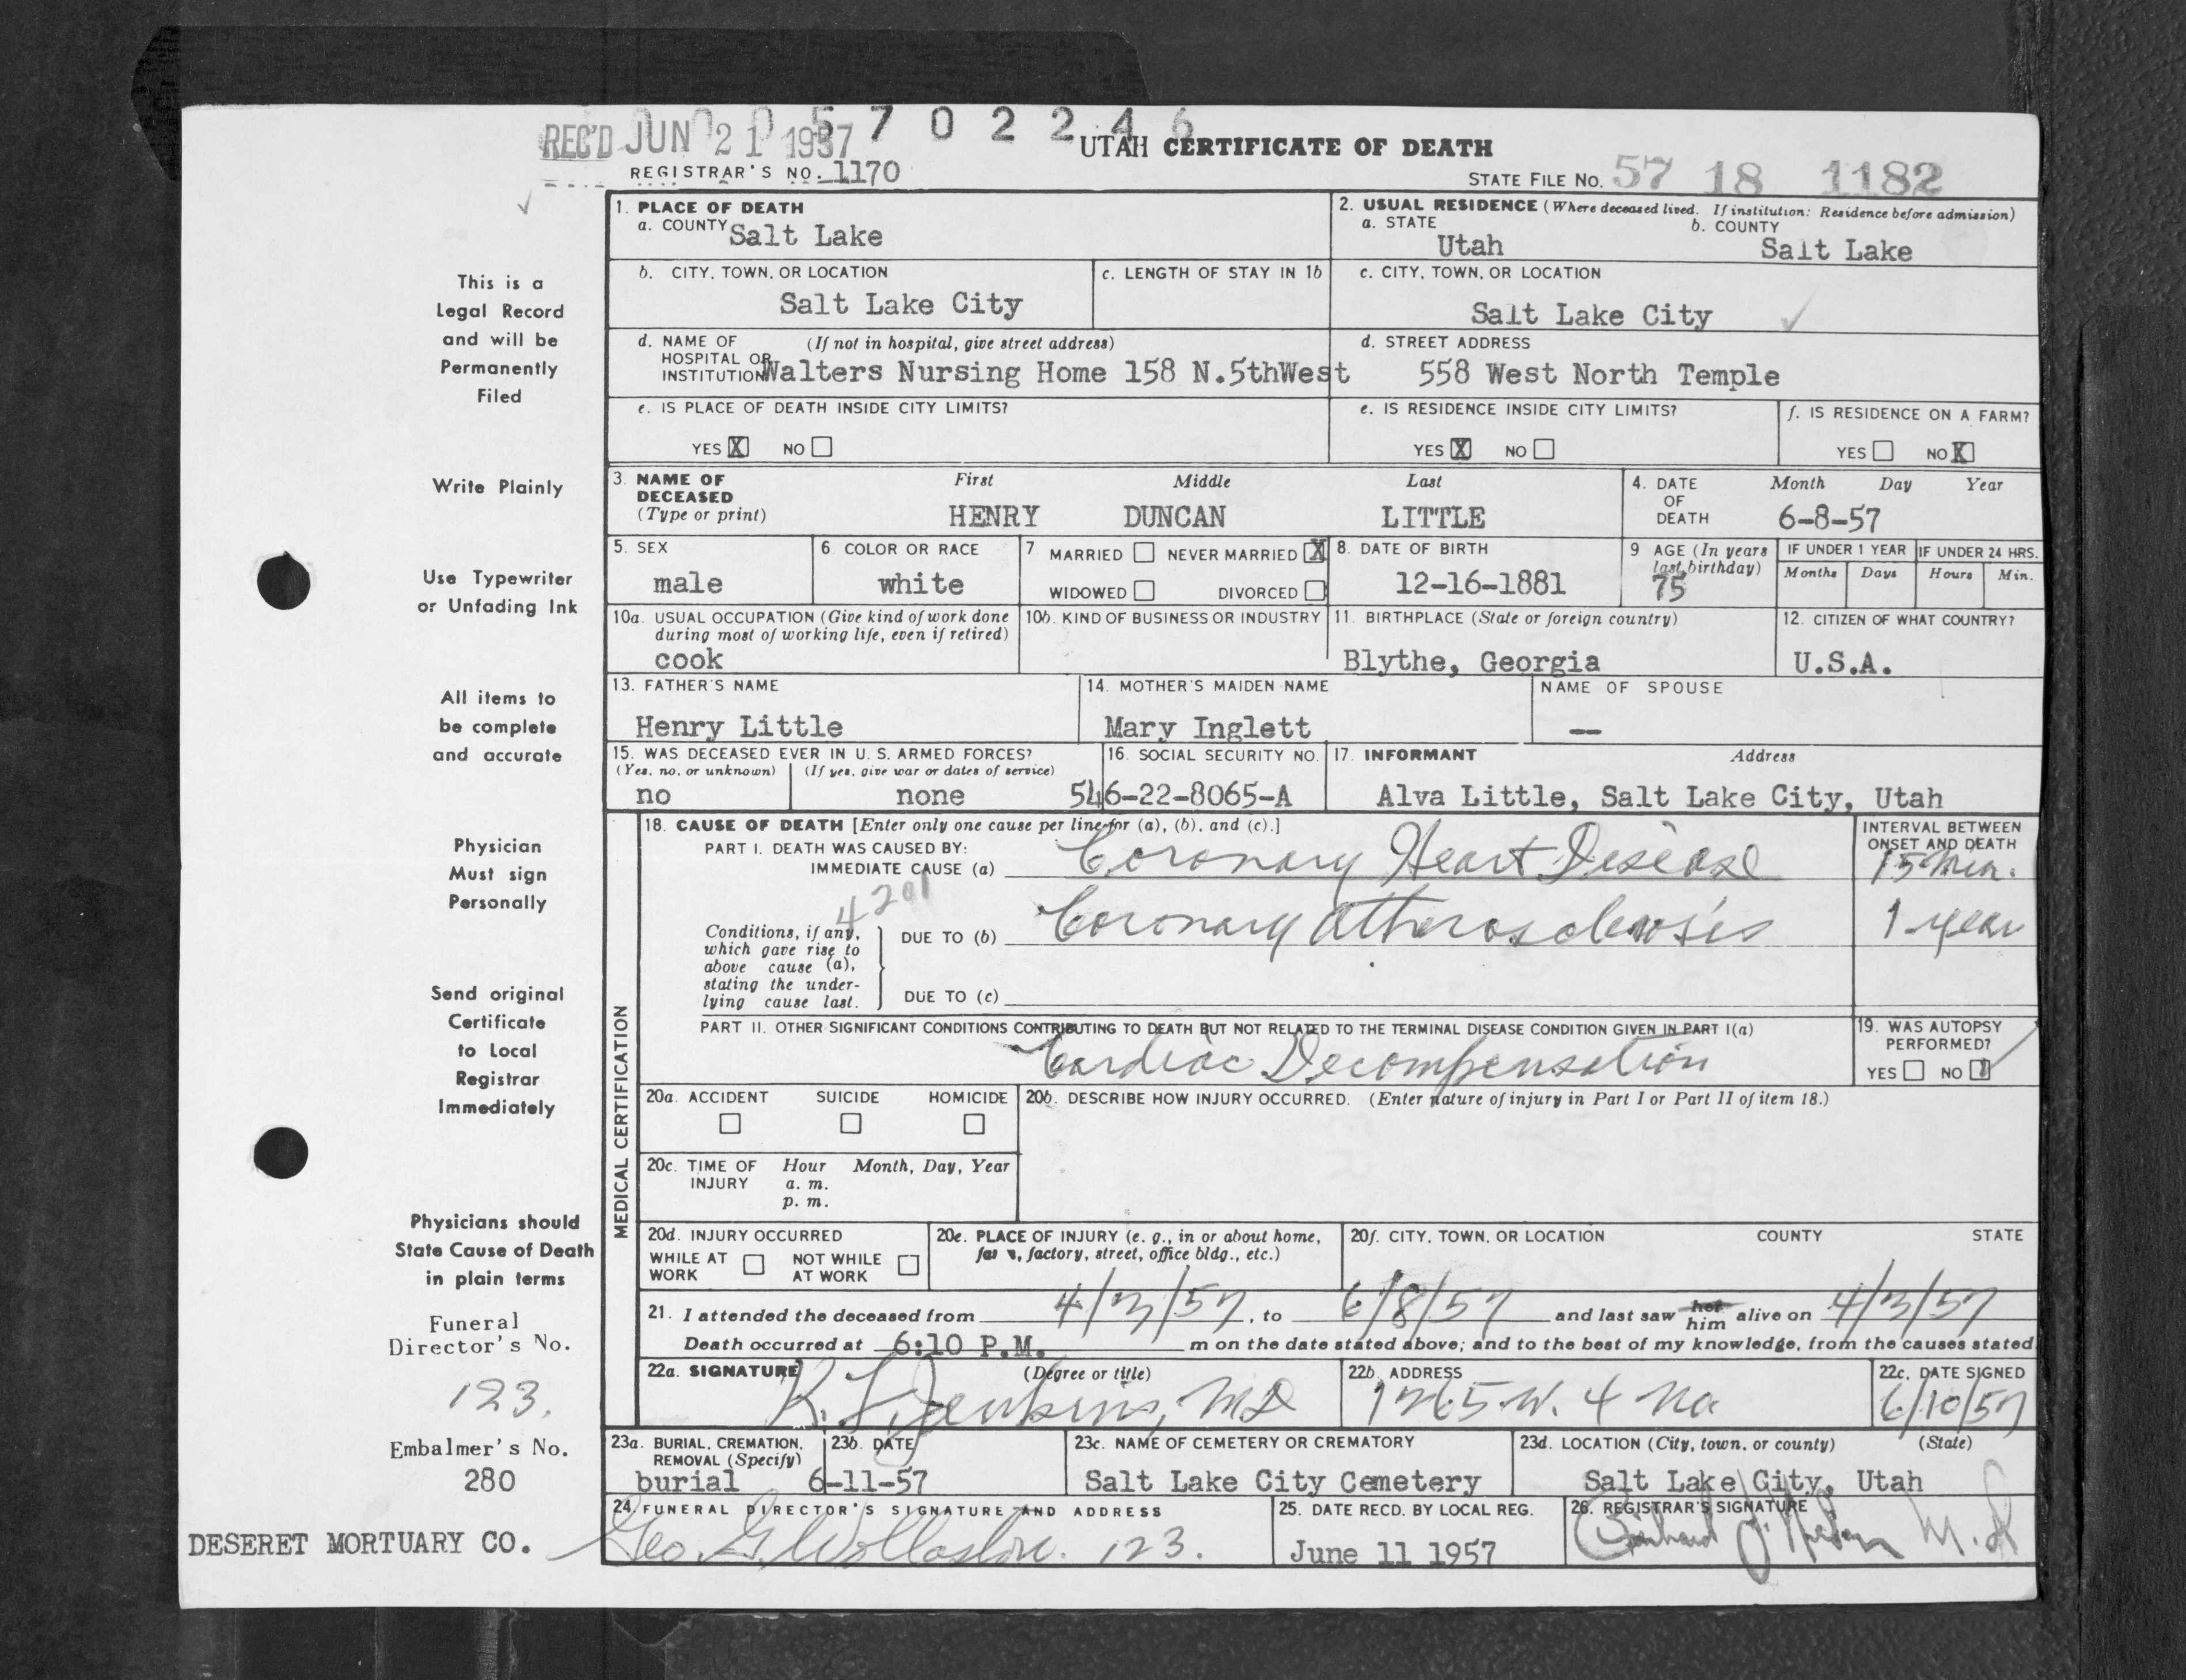 005702246
REC'D JUN 21 1957
UTAH CERTIFICATE OF DEATH
REGISTRAR'S NO. 1170
STATE FILE NO. 57 18 1182
1. PLACE OF DEATH
a. COUNTY Salt Lake
2. USUAL RESIDENCE (Where deceased lived. If institution: Residence before admission)
a. STATE Utah b. COUNTY Salt Lake
b. CITY, TOWN, OR LOCATION Salt Lake City
c. LENGTH OF STAY IN 1b
c. CITY, TOWN, OR LOCATION Salt Lake City
d. NAME OF HOSPITAL OR INSTITUTION (If not in hospital, give street address) Walters Nursing Home 158 N.5thWest
d. STREET ADDRESS 558 West North Temple
e. IS PLACE OF DEATH INSIDE CITY LIMITS?
YES X NO
e. IS RESIDENCE INSIDE CITY LIMITS?
YES X NO
f. IS RESIDENCE ON A FARM?
YES NO X
3. NAME OF DECEASED (Type or print)
First Middle Last
HENRY DUNCAN LITTLE
4. DATE OF DEATH Month Day Year
6-8-57
5. SEX male
6. COLOR OR RACE white
7. MARRIED NEVER MARRIED X
WIDOWED DIVORCED
8. DATE OF BIRTH 12-16-1881
9 AGE (In years last birthday) 75
IF UNDER 1 YEAR Months Days
IF UNDER 24 HRS. Hours Min.
10a. USUAL OCCUPATION (Give kind of work done during most of working life, even if retired)
cook
10b. KIND OF BUSINESS OR INDUSTRY
11. BIRTHPLACE (State or foreign country)
Blythe, Georgia
12. CITIZEN OF WHAT COUNTRY?
U.S.A.
13. FATHER'S NAME
Henry Little
14. MOTHER'S MAIDEN NAME
Mary Inglett
NAME OF SPOUSE
—
15. WAS DECEASED EVER IN U. S. ARMED FORCES?
(Yes, no, or unknown) (If yes, give war or dates of service)
no none
16. SOCIAL SECURITY NO.
546-22-8065-A
17. INFORMANT Address
Alva Little, Salt Lake City, Utah
MEDICAL CERTIFICATION
18. CAUSE OF DEATH [Enter only one cause per line for (a), (b), and (c).]
INTERVAL BETWEEN ONSET AND DEATH
PART I. DEATH WAS CAUSED BY:
IMMEDIATE CAUSE (a) Coronary Heart Disease 15 Min.
4201
Conditions, if any, which gave rise to above cause (a), stating the underlying cause last.
DUE TO (b) Coronary Atherosclerosis 1 year
DUE TO (c)
PART II. OTHER SIGNIFICANT CONDITIONS CONTRIBUTING TO DEATH BUT NOT RELATED TO THE TERMINAL DISEASE CONDITION GIVEN IN PART I(a)
Cardiac Decompensation
19. WAS AUTOPSY PERFORMED?
YES NO
20a. ACCIDENT SUICIDE HOMICIDE
20b. DESCRIBE HOW INJURY OCCURRED. (Enter nature of injury in Part I or Part II of item 18.)
20c. TIME OF INJURY Hour Month, Day, Year
a. m.
p. m.
20d. INJURY OCCURRED
WHILE AT WORK NOT WHILE AT WORK
20e. PLACE OF INJURY (e. g., in or about home, farm, factory, street, office bldg., etc.)
20f. CITY, TOWN, OR LOCATION COUNTY STATE
21. I attended the deceased from 4/3/57, to 6/8/57 and last saw her him alive on 4/3/57
Death occurred at 6:10 P.M. m on the date stated above; and to the best of my knowledge, from the causes stated
22a. SIGNATURE (Degree or title)
K. L. Jenkins, MD
22b. ADDRESS
1265 W. 4 No
22c. DATE SIGNED
6/10/57
23a. BURIAL, CREMATION, REMOVAL (Specify)
burial
23b. DATE
6-11-57
23c. NAME OF CEMETERY OR CREMATORY
Salt Lake City Cemetery
23d. LOCATION (City, town, or county) (State)
Salt Lake City, Utah
24. FUNERAL DIRECTOR'S SIGNATURE AND ADDRESS
Geo. G. Wollaston. 123.
25. DATE RECD. BY LOCAL REG.
June 11 1957
26. REGISTRAR'S SIGNATURE
This is a
Legal Record
and will be
Permanently
Filed
Write Plainly
Use Typewriter
or Unfading Ink
All items to
be complete
and accurate
Physician
Must sign
Personally
Send original
Certificate
to Local
Registrar
Immediately
Physicians should
State Cause of Death
in plain terms
Funeral
Director's No.
123.
Embalmer's No.
280
DESERET MORTUARY CO.